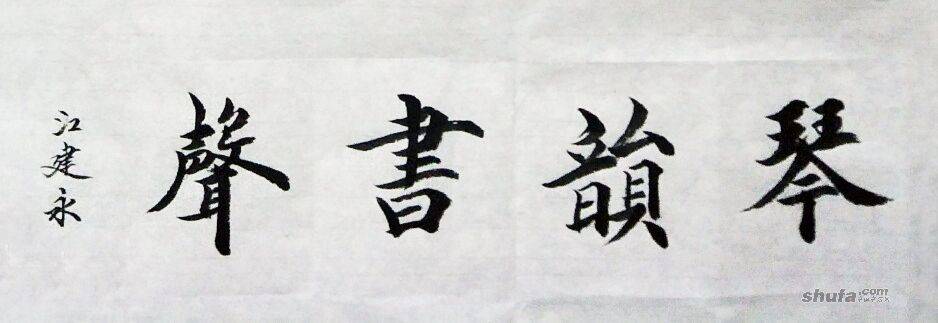 琴韻書聲
江建永
shufa.com